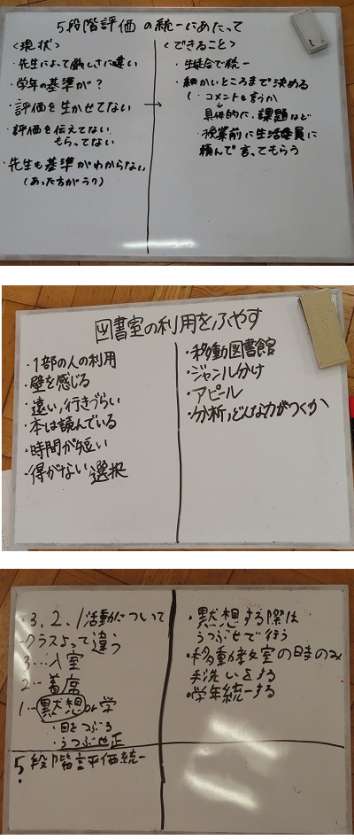 5段階評価の統一にあたって
<現状>
・先生によって厳しさに違い
・学年の基準が?
・評価を生かせてない
・評価を伝えてない
もらってない
・先生も基準がわからない
(あった方がラク)
→
<できること>
・生徒会で統一
・細かいところまで決める
(・コメントも言うか
具体的に、課題など
・授業前に生活委員に
頼んで言ってもらう
図書室の利用をふやす
・1部の人の利用
・壁を感じる
・遠い,行きづらい
・本は読んでいる
・時間が短い
・得がない選択
・移動図書館
・ジャンル分け
・アピール
・分析,どんな力がつくか
・3.2.1活動について
クラスよって違う
3…入室
2…着席
1…黙想or学
・目をつぶる
・うつぶせ正
5段階評価統一
・
・黙想する際は
うつぶせで行う
・移動教室の時のみ
手洗いをする
・学年統一する